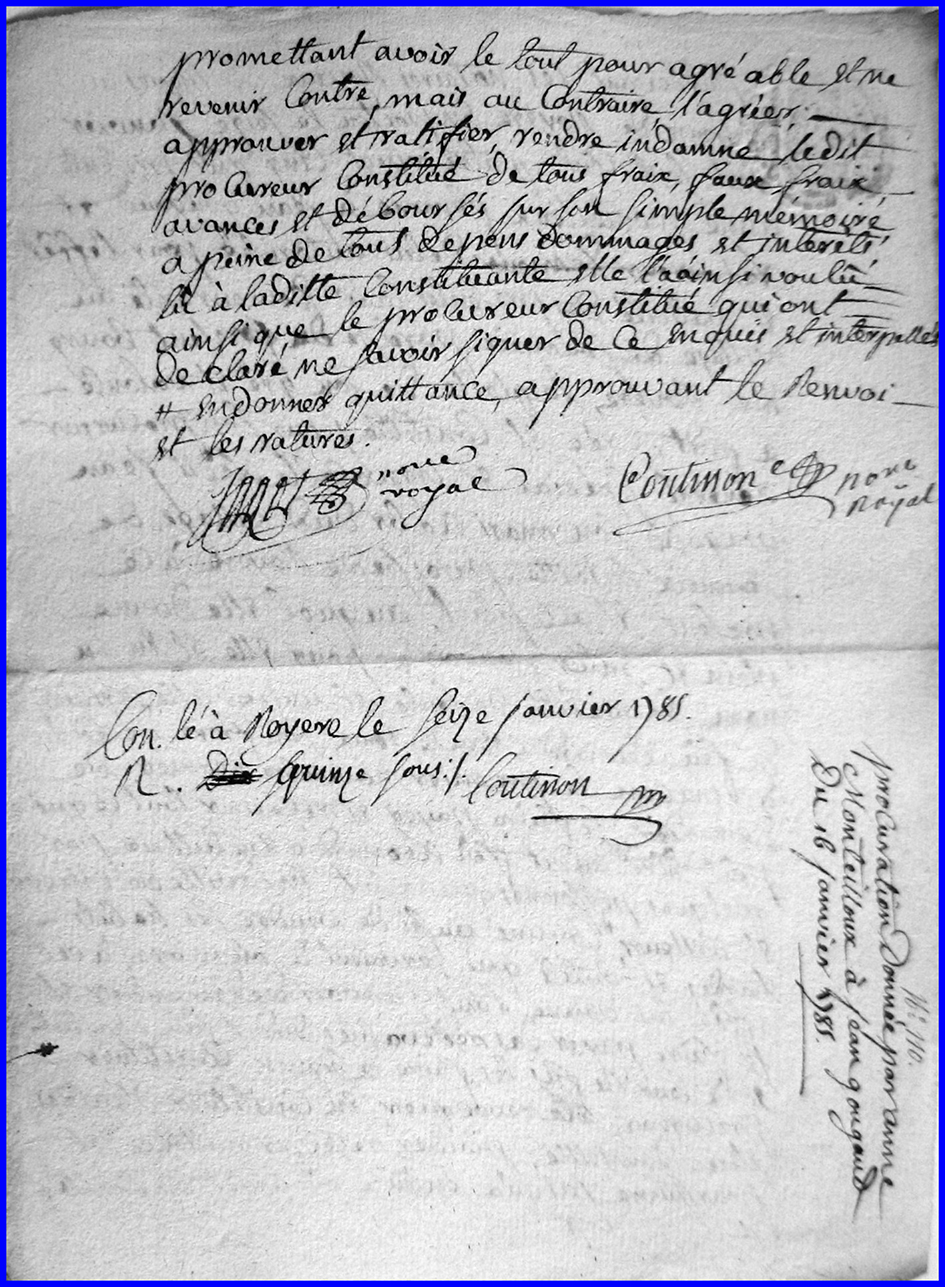 promettant avoir le tout pour agréable et ne
revenir Contre, mais au Contraire l'agréer
approuver et ratifier, rendre indamne ledit
procureur Constitué de tous fraix, faux fraix
avances et déboursés sur son simple mémoire
a peine de tous depens dommages et interets
lu à laditte Constituante elle l'a ainsi voulu
ainsi que le procureur Constitué qui ont
declaré ne savoir signer de ce enquis et interpellés
# en donner quittance, approuvant le Renvoi
et les ratures.
nore
royal
Coutinon nore
Royal
Con. lé à Royere le seize janvier 1785.
R.. quinze sous ./. Coutinon
No 110.
procuration donnée par anne
Monteilloux à jean gougaud
Du 16 janvier 1785.